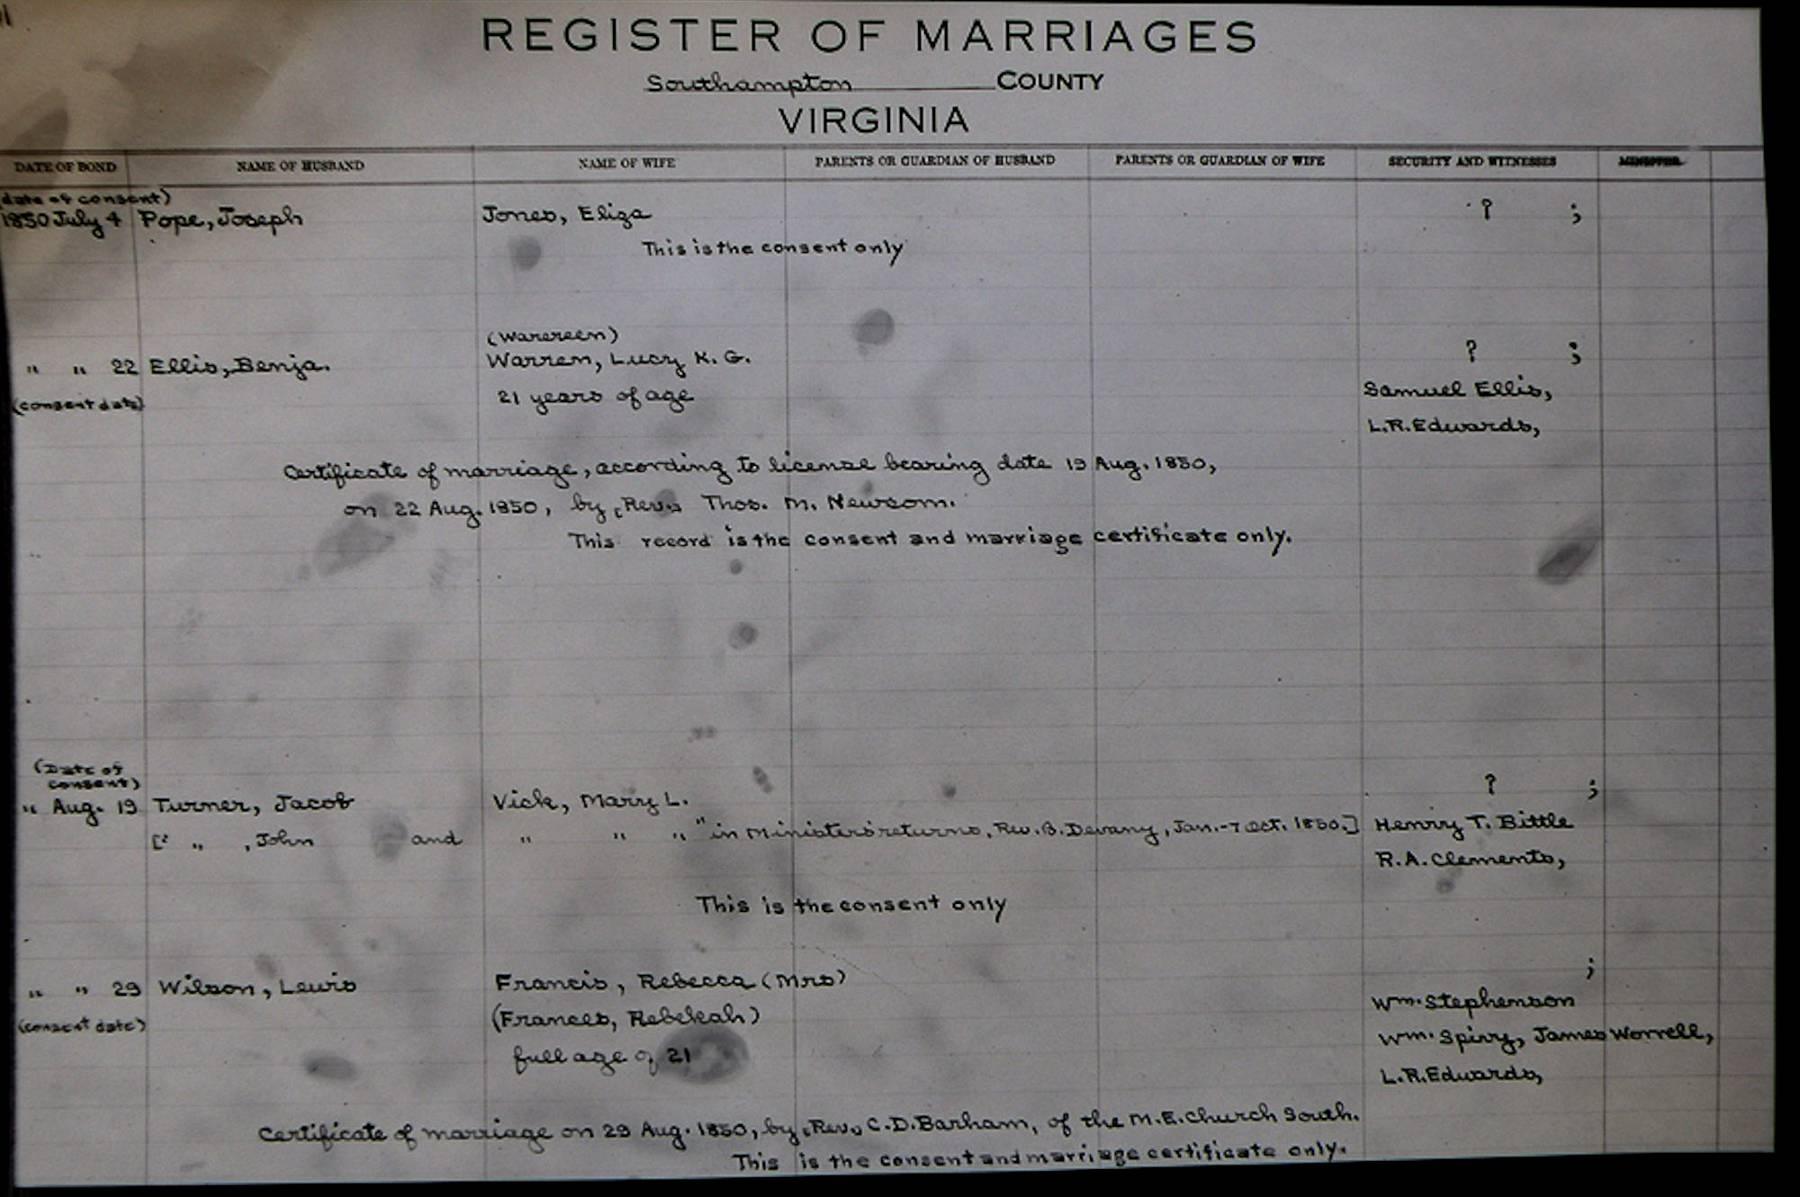 REGISTER OF MARRIAGES
Southampton COUNTY
VIRGINIA
DATE OF BOND NAME OF HUSBAND NAME OF WIFE PARENTS OR GUARDIAN OF HUSBAND PARENTS OR GUARDIAN OF WIFE SECURITY AND WITNESSES MINISTER
(date of consent)
1850 July 4 Pope, Joseph Jones, Eliza ? ;
This is the consent only
(Warereen)
" " 22 Ellis, Benja. Warren, Lucy K. G. ? ;
(consent date) 21 years of age Samuel Ellis,
L.R. Edwards,
Certificate of marriage, according to license bearing date 19 Aug. 1850,
on 22 Aug. 1850, by (Rev.) Thos. M. Newsom.
This record is the consent and marriage certificate only.
(Date of
consent) ? ;
" Aug. 19 Turner, Jacob Vick, Mary L.
[" " , John and " " " " in Ministers' returns, Rev. B. Devany, Jan.-7 Oct. 1850.] Henry T. Bittle
R.A. Clements,
This is the consent only
;
" " 29 Wilson, Lewis Francis, Rebecca (Mrs)
(consent date) (Frances, Rebekah) Wm. Stephenson
full age of 21 Wm. Spivy, James Worrell,
L.R. Edwards,
Certificate of marriage on 29 Aug. 1850, by (Rev.) C.D. Barham, of the M.E. Church South.
This is the consent and marriage certificate only.